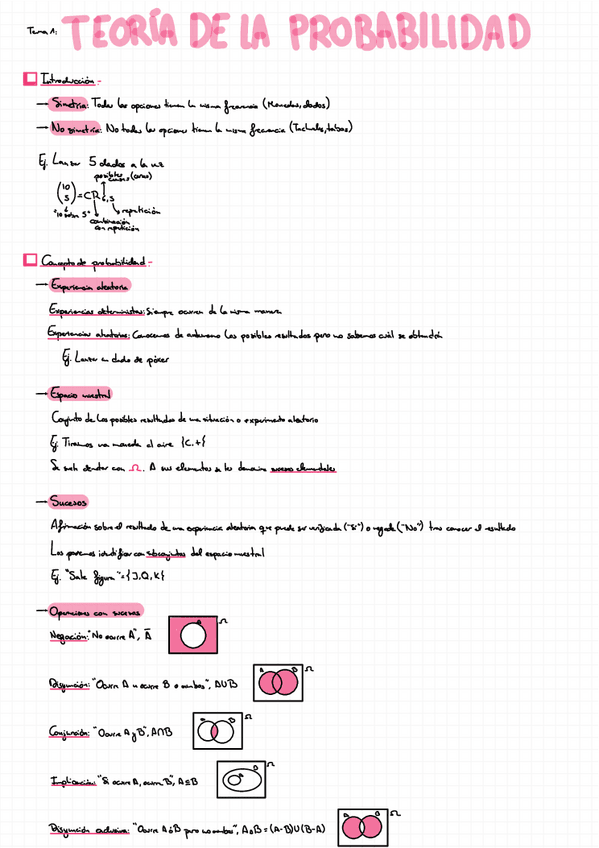 Tema 1: TEORÍA DE LA PROBABILIDAD
Introducción -
→ Simetría: Todas las opciones tienen la misma frecuencia (Monedas, dados)
→ No simetría: No todas las opciones tienen la misma frecuencia (Tachuelas, tabas)
Ej. Lanzar 5 dados a la vez
posibles casos (caras)
(10 5) = CR6,5
"10 sobre 5"
repetición
combinación con repetición
Concepto de probabilidad -
→ Experiencia aleatoria
Experiencias deterministas: Siempre ocurren de la misma manera
Experiencias aleatorias: Conocemos de antemano los posibles resultados pero no sabemos cuál se obtendrá
Ej. Lanzar un dado de póker
→ Espacio muestral
Conjunto de los posibles resultados de una situación o experimento aleatorio
Ej. Tiramos una moneda al aire {C,+}
Se suele denotar con Ω. A sus elementos se les denomina sucesos elementales
→ Sucesos
Afirmación sobre el resultado de una experiencia aleatoria que puede ser verificada ("Sí") o negada ("No") tras conocer el resultado
Los podemos identificar con subconjuntos del espacio muestral
Ej. "Sale figura" = {J,Q,K}
→ Operaciones con sucesos
Negación: "No ocurre A", A̅
A Ω
Disyunción: "Ocurre A u ocurre B o ambos", A∪B
A B Ω
Conjunción: "Ocurre A y B", A∩B
A B Ω
Implicación: "Si ocurre A, ocurre B", A⊆B
A B Ω
Disyunción exclusiva: "Ocurre A ó B pero no ambos", AΔB = (A-B)∪(B-A)
A B Ω